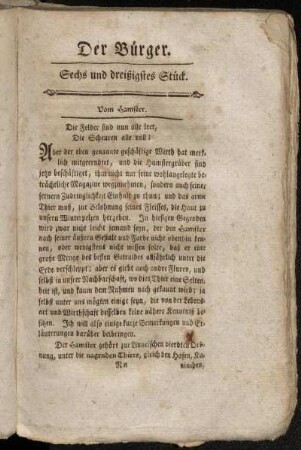 Der Bürger.
Sechs und dreißigstes Stück.
Vom Hamster.
Die Felder sind nun alle leer,
Die Scheuren alle voll!
Aber der eben genannte geschäftige Wirth hat merk-
lich mitgeerndtet, und die Hamstergräber sind
jetzo beschäftiget, ihm nicht nur seine wohlangelegte be-
trächtliche Magazine wegzunehmen, sondern auch seiner
fernern Zudringlichkeit Einhalt zu thun; und das arme
Thier muß, zur Belohnung seines Fleisses, die Haut zu
unsern Winterpelzen hergeben. In hiesigen Gegenden
wird zwar nicht leicht jemand seyn, der den Hamster
nach seiner äußern Gestalt und Farbe nicht obenhin ken-
nen, oder wenigstens nicht wissen sollte, daß er eine
große Menge des besten Getraides alljährlich unter die
Erde verschleppt: aber es giebt auch andre Fluren, und
selbst in unsrer Nachbarschaft, wo dies Thier eine Selten-
heit ist, und kaum dem Nahmen nach gekannt wird; ja
selbst unter uns mögten einige seyn, die von der Lebens-
art und Wirthschaft desselben keine nähere Kenntniß be-
sitzen. Ich will also einige kurze Bemerkungen und Er-
läuterungen darüber beibringen.
Der Hamster gehört zur Linneischen vierdten Ord-
nung, unter die nagenden Thiere, gleich den Hasen, Ka-
Nn
ninchen,